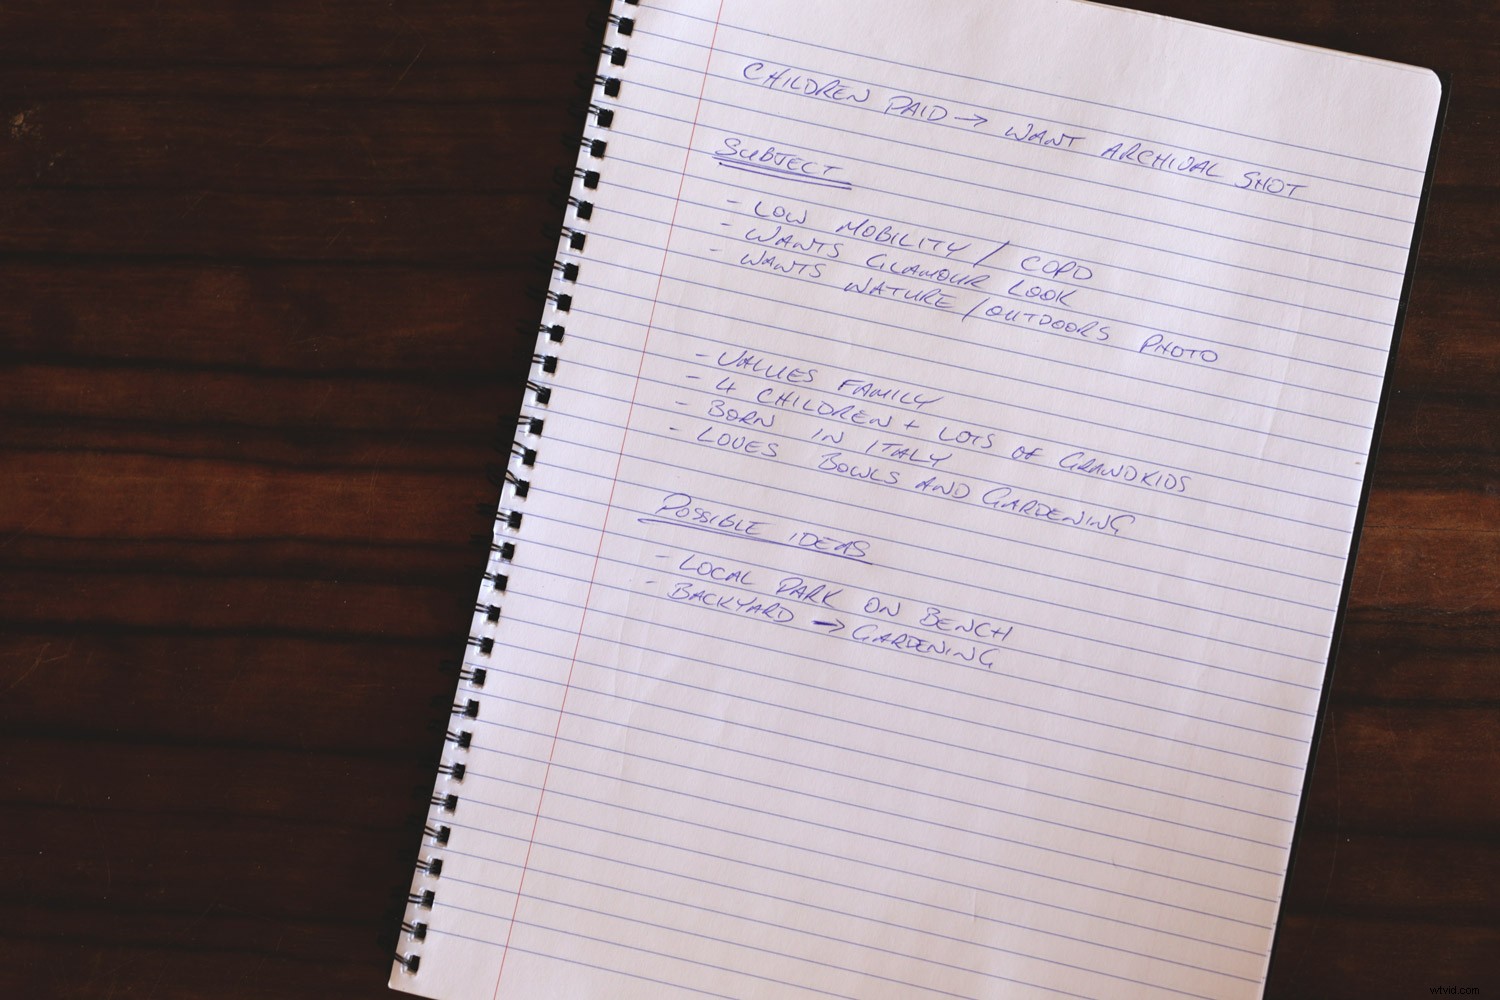 CHILDREN PAID → WANT ARCHIVAL SHOT
SUBJECT
- LOW MOBILITY / COPD
- WANTS GLAMOUR LOOK
- WANTS NATURE / OUTDOORS PHOTO
- VALUES FAMILY
- 4 CHILDREN + LOTS OF GRANDKIDS
- BORN IN ITALY
- LOVES BOWLS AND GARDENING
POSSIBLE IDEAS
- LOCAL PARK ON BENCH
- BACKYARD → GARDENING
wtvid.com